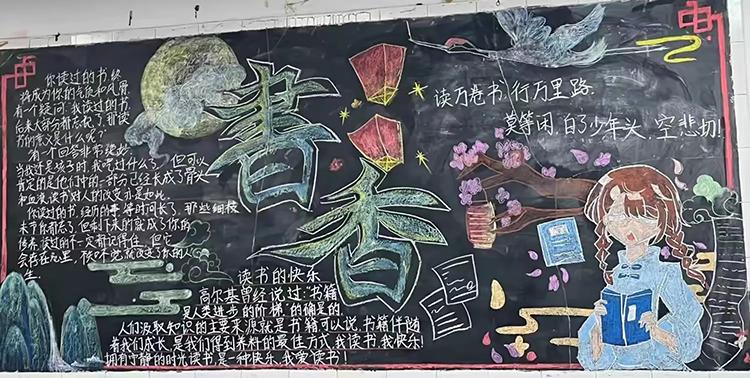 你读过的书,终
将成为你的气质和风骨
有一个疑问"我读过的书,
后来大部分都忘记了,那读
书的意义是什么呢?"
有一个回答非常绝妙
当我还是孩子时,我吃过什么了,但可以
肯定的是他们中的一部分已经长成了骨头
和血液,读书对人的改变亦是如此.
你读过的书,经历的事,等时间长了,那些细枝
末节你都忘了,但剩下来的就成了你的
修养,读过的不一定都记得住,但它
会存在心里,
生
書香
读万卷书,行万里路.
莫等闲,白了少年头,空悲切!
读书的快乐
高尔基曾经说过:"书籍
是人类进步的阶梯"的确是的.
人们汲取知识的主要来源就是书籍可以说,书籍伴随
着我们成长,是我们得到养料的最佳方式,我读书,我快乐!
拥有宁静的时光读书是一种快乐,我爱读书!